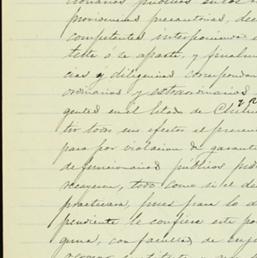 cionarios públicos en los
providencias precautorias, dec
competentes interponiendo
teste ó se aparte, y finalm
cias y diligencias correspondan
ordinarios y extraordinarios
gentes en el Estado de Chihua
tir todos sus efectos el presen
paro por violacion de garant
de funcionarios públicos pud
ocurran, todo como si el
practicara, pues para lo
pendiente le confiere este po
guna, con facultad de